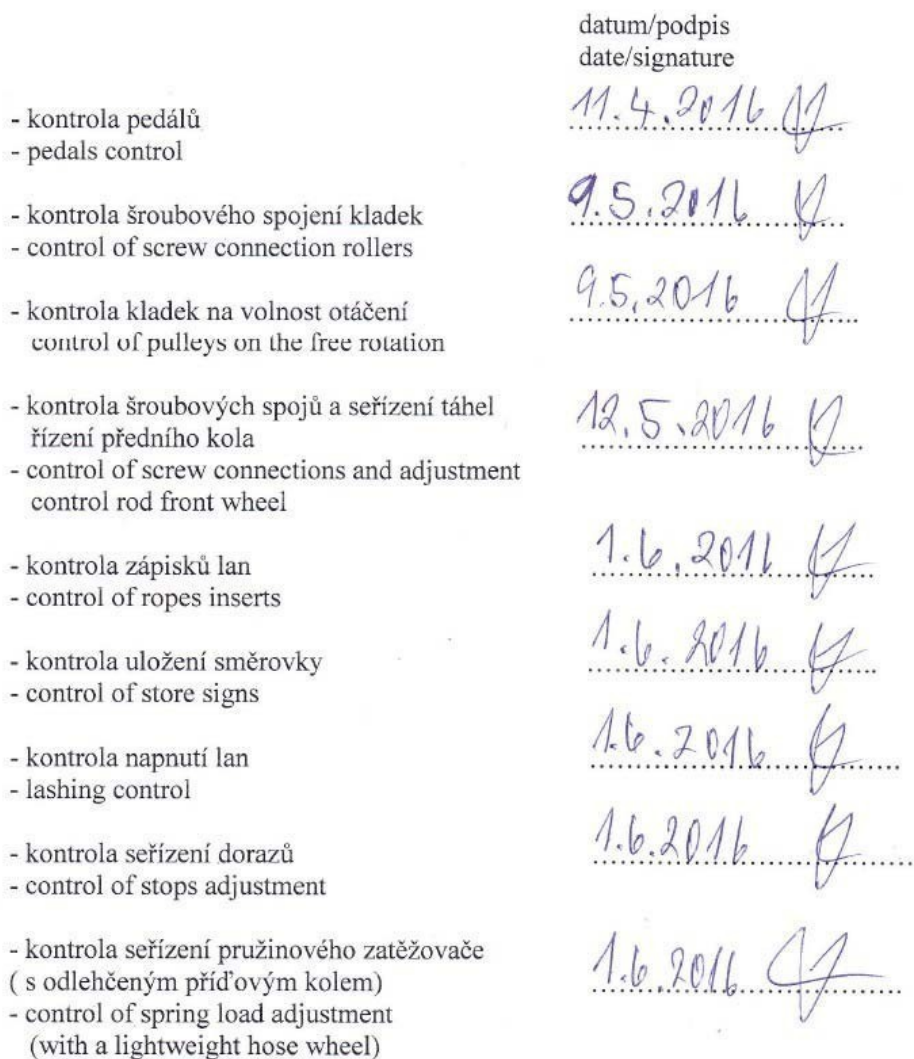 datum/podpis
date/signature
- kontrola pedálů
11.4.2016
- pedals control
- kontrola šroubového spojení kladek
9.5.2016
- control of screw connection rollers
- kontrola kladek na volnost otáčení
9.5.2016
control of pulleys on the free rotation
- kontrola šroubových spojů a seřízení táhel
12.5.2016
řízení předního kola
- control of screw connections and adjustment
control rod front wheel
- kontrola zápisků lan
1.6.2016
- control of ropes inserts
- kontrola uložení směrovky
1.6.2016
- control of store signs
- kontrola napnutí lan
1.6.2016
- lashing control
- kontrola seřízení dorazů
1.6.2016
- control of stops adjustment
- kontrola seřízení pružinového zatěžovače
( s odlehčeným příďovým kolem)
1.6.2016
- control of spring load adjustment
(with a lightweight hose wheel)